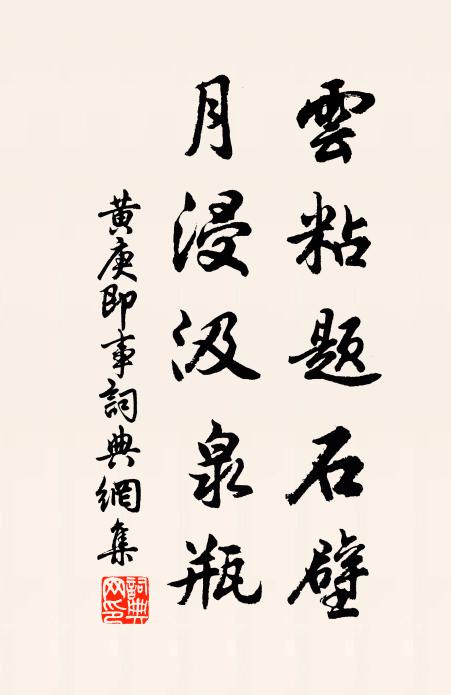 雲粘題石壁
月浸汲泉瓶
黄庚即事詞典網集
詞典網印